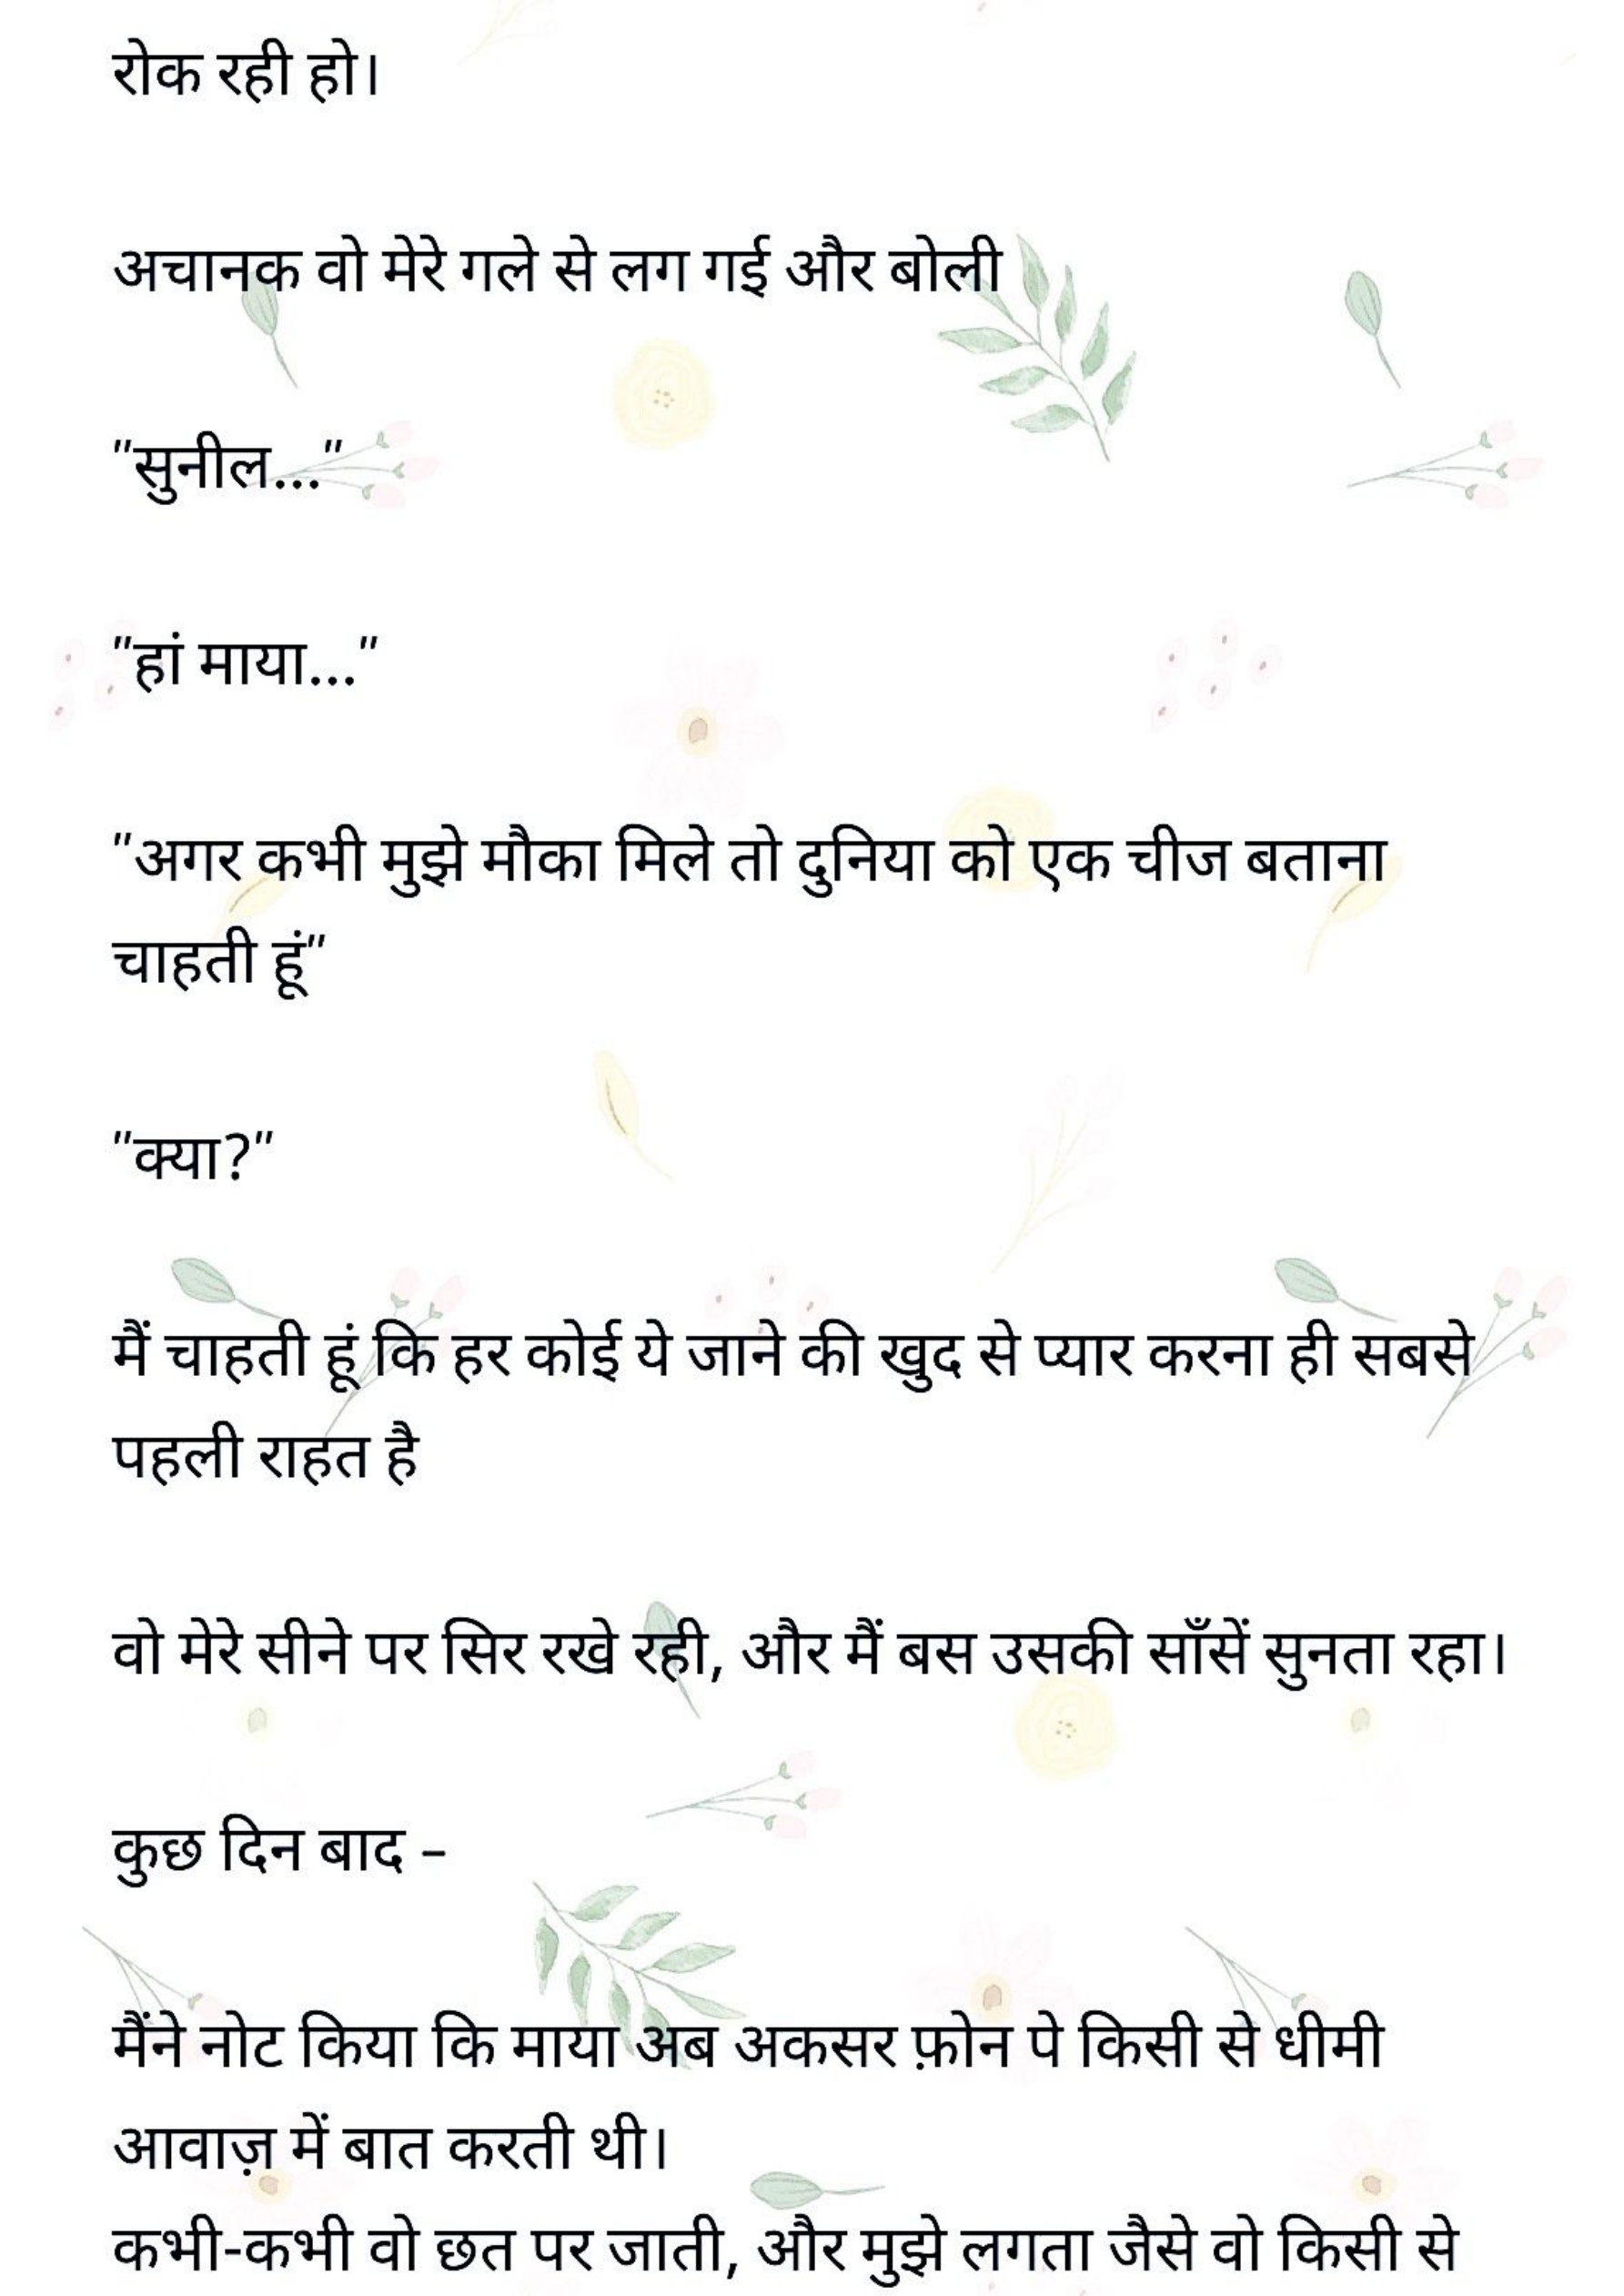 रोक रही हो।
अचानक वो मेरे गले से लग गई और बोली
"सुनील..."
"हां माया..."
"अगर कभी मुझे मौका मिले तो दुनिया को एक चीज बताना
चाहती हूं"
"क्या?"
मैं चाहती हूं कि हर कोई ये जाने की खुद से प्यार करना ही सबसे
पहली राहत है
वो मेरे सीने पर सिर रखे रही, और मैं बस उसकी साँसें सुनता रहा।
कुछ दिन बाद –
मैंने नोट किया कि माया अब अकसर फ़ोन पे किसी से धीमी
आवाज़ में बात करती थी।
कभी-कभी वो छत पर जाती, और मुझे लगता जैसे वो किसी से